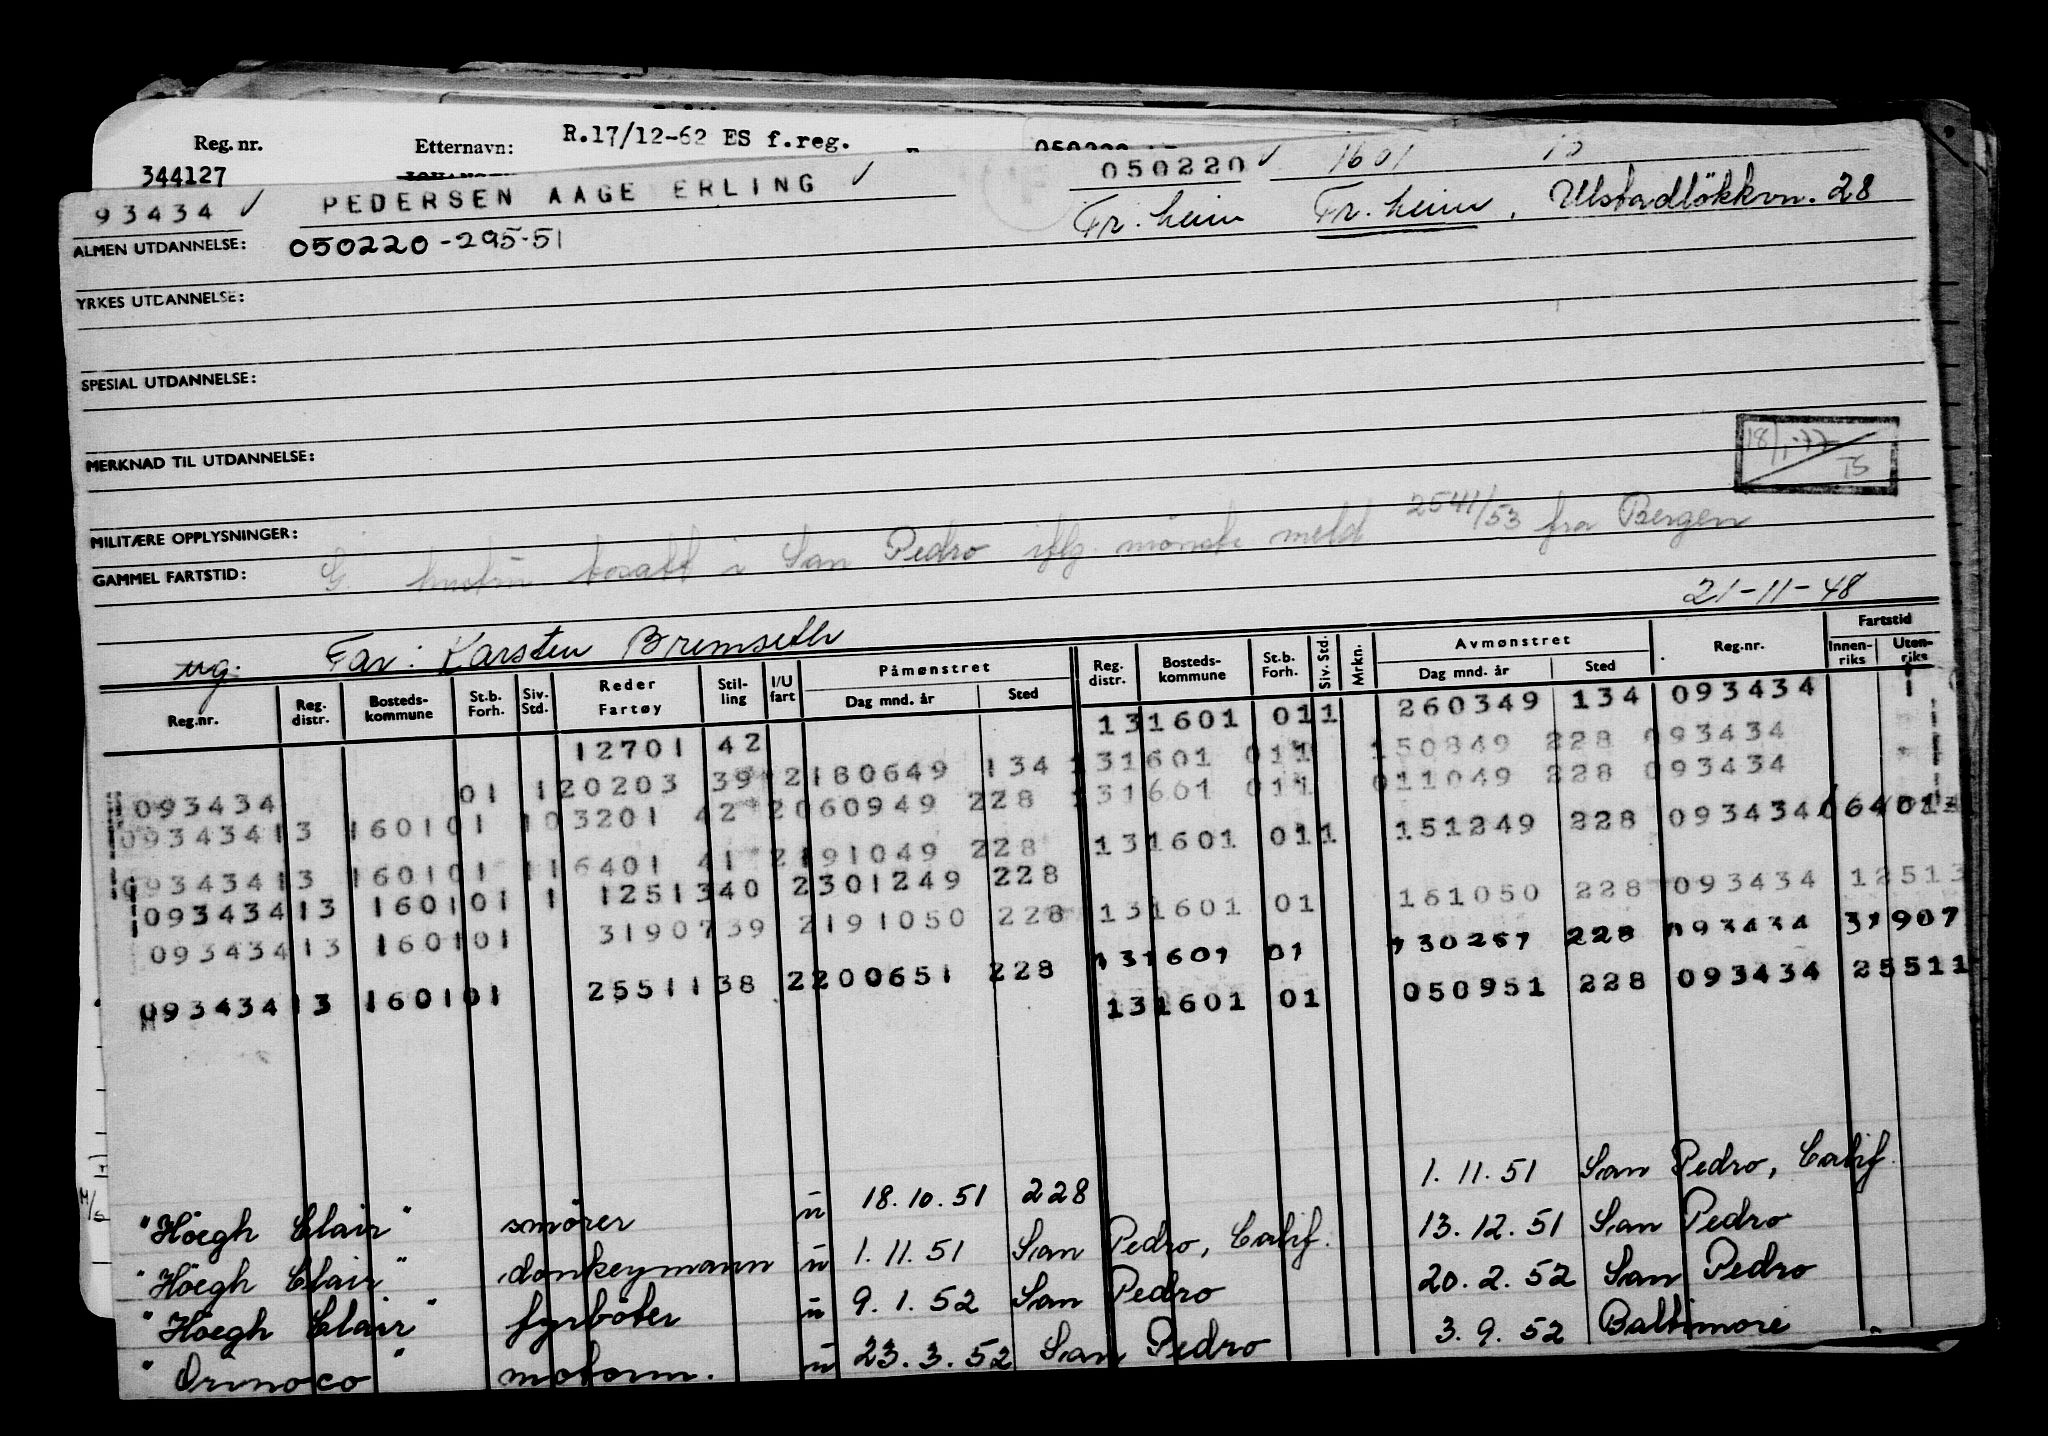 Reg. nr. Etternavn: R.17/12-62 ES f.reg.
344127
93434 ✓ PEDERSEN AAGE ERLING ✓ 050220 ✓ 1601 10
Fr. heim Fr. heim, Ulstadløkkvn. 28
ALMEN UTDANNELSE: 050220-295-51
YRKES UTDANNELSE:
SPESIAL UTDANNELSE:
MERKNAD TIL UTDANNELSE:
TS
MILITÆRE OPPLYSNINGER:
GAMMEL FARTSTID: bosatt i San Pedro iflg. mønstr. meld 2541/53 fra Bergen
21-11-48
ug. Far: Karsten Bremseth
Reg.nr. Reg. distr. Bosteds-kommune St.b. Forh. Siv. Std. Reder Fartøy Stil-ling I/U fart Påmønstret Dag mnd. år Sted Reg. distr. Bosteds-kommune St.b. Forh. Siv. Std. Mrkn. Avmønstret Dag mnd. år Sted Reg.nr. Fartstid Innen-riks Uten-riks
12701 42 131601 011 260349 134 093434
093434 01 120203 39 2180649 134 131601 011 150849 228 093434
09343413 160101 103201 42 2060949 228 131601 011 011049 228 093434
09343413 160101 116401 41 2191049 228 131601 011 151249 228 093434 06401
09343413 160101 1 1251340 2301249 228 131601 01 161050 228 093434 12513
09343413 160101 3190739 2191050 228 131601 01 228 093434 31907
09343413 160101 2551138 2200651 228 131601 01 050951 228 093434 25511
"Höegh Clair" smörer u 18.10.51 228 1.11.51 San Pedro, Calif.
"Höegh Clair" donkeymann u 1.11.51 San Pedro, Calif. 13.12.51 San Pedro
"Höegh Clair" fyrböter u 9.1.52 San Pedro 20.2.52 San Pedro
"Orinoco" motorm. u 23.3.52 San Pedro 3.9.52 Baltimore